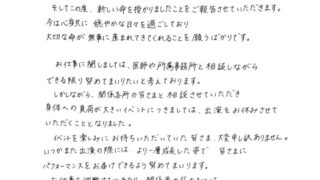 そしてこの度、新しい命を授かりましたことをご報告させていただきます。
今は心身共に 穏やかな日々を過ごしており
大切な命が無事に産まれてきてくれることを願うばかりです。
お仕事に関しましては、医師や所属事務所と相談しながら
できる限り努めてまいりたいと考えております。
しかしながら、関係各所の皆さまと相談させていただき
身体への負荷が大きいイベントにつきましては、出演をお休みさせて
いただくこととなりました。
イベントを楽しみにお待ちいただいていた皆さま、大変申し訳ありません。
いつかまた出演の際には、より一層成長した姿で 皆さまに
パフォーマンスをお届けできるよう努めてまいります。